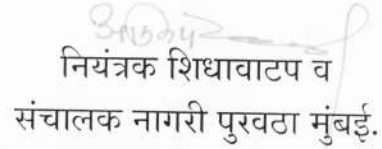 नियंत्रक शिधावाटप व
संचालक नागरी पुरवठा मुंबई.